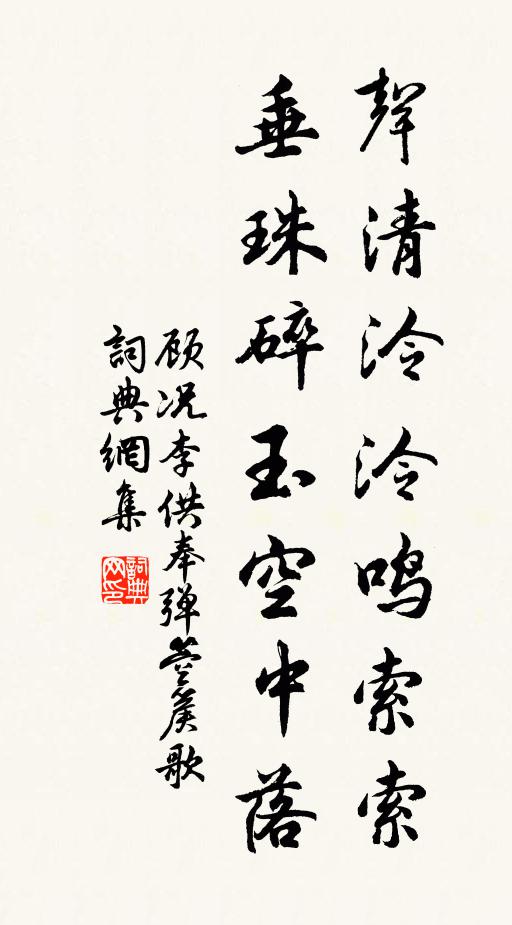 聲清泠泠鳴索索
垂珠碎玉空中落
顾况李供奉弹箜篌歌
詞典網集
詞典网印